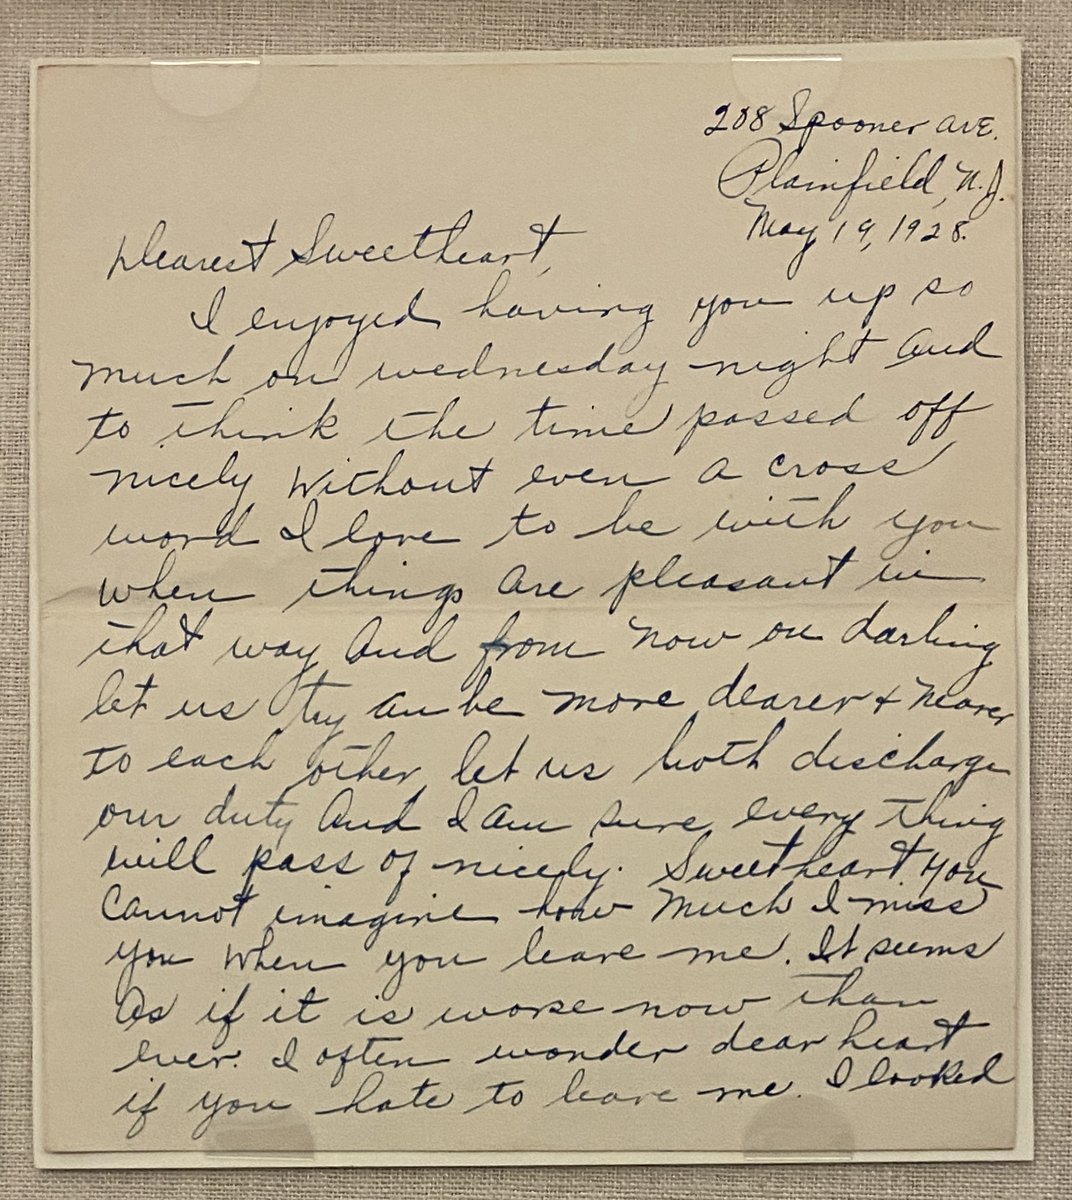 208 Spooner Ave.
Plainfield, N.J.
May 19, 1928.
Dearest Sweetheart,
I enjoyed having you up so
much on wednesday night and
to think the time passed off
nicely without even a cross
word I love to be with you
when things are pleasant in
that way and from now on darling
let us try an be more dearer + nearer
to each other let us both discharge
our duty and I am sure every thing
will pass of nicely. Sweetheart you
cannot imagine how much I miss
you when you leave me. It seems
as if it is worse now than
ever. I often wonder dear heart
if you hate to leave me. I looked